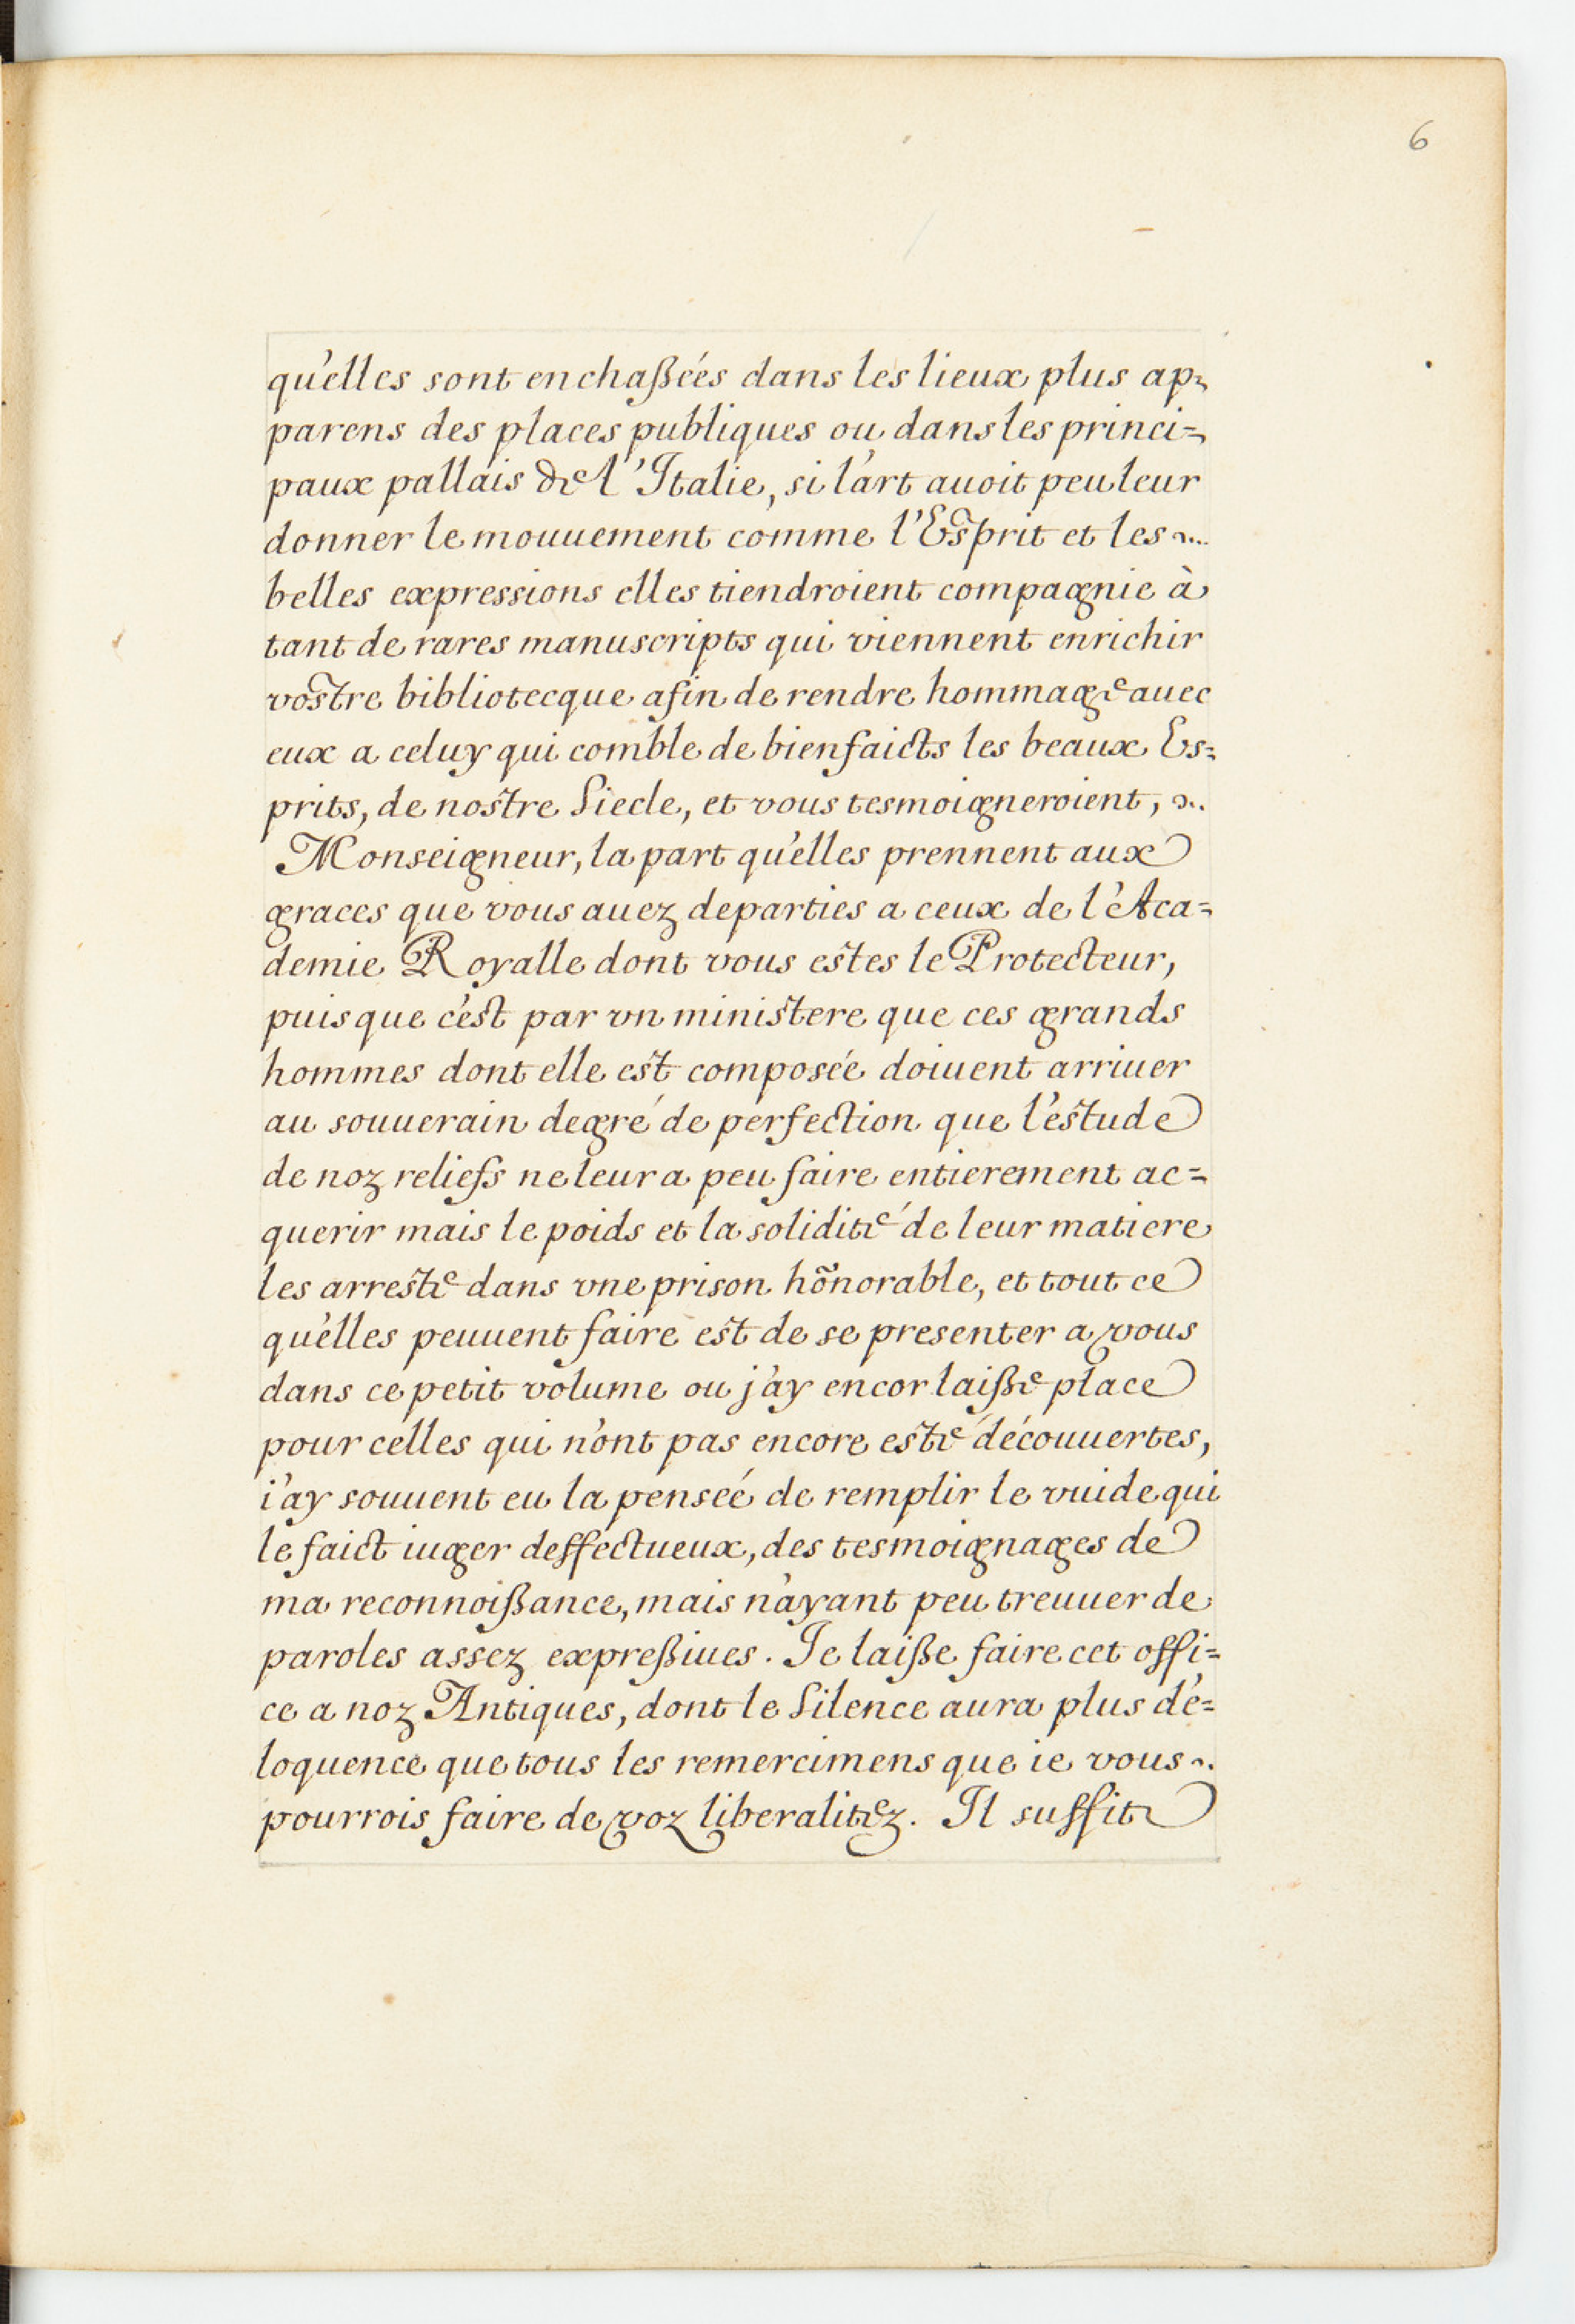 6
qu'elles sont enchaßées dans les lieux plus ap=
parens des places publiques ou dans les princi=
paux pallais de l'Italie, si l'art auoit peu leur
donner le mouuement comme l'Esprit et les
belles expressions elles tiendroient compagnie à
tant de rares manuscripts qui viennent enrichir
vostre bibliotecque afin de rendre hommage auec
eux a celuy qui comble de bienfaicts les beaux Es=
prits, de nostre Siecle, et vous tesmoigneroient,
Monseigneur, la part qu'elles prennent aux
graces que vous auez departies a ceux de l'Aca=
demie Royalle dont vous estes le Protecteur,
puis que c'est par vn ministere que ces grands
hommes dont elle est composée doiuent arriuer
au souuerain degré de perfection que l'estude
de noz reliefs ne leur a peu faire entierement ac=
querir mais le poids et la solidité de leur matiere
les arreste dans vne prison hõnorable, et tout ce
qu'elles peuuent faire est de se presenter a vous
dans ce petit volume ou j'ay encor laiße place
pour celles qui n'ont pas encore esté découuertes,
i'ay souuent eu la penseé de remplir le vuide qui
le faict iuger deffectueux, des tesmoignages de
ma reconnoißance, mais n'ayant peu treuuer de
paroles assez expreßiues. Je laiße faire cet offi=
ce a noz Antiques, dont le Silence aura plus d'é=
loquence que tous les remercimens que ie vous
pourrois faire de voz liberalitez. Il suffit